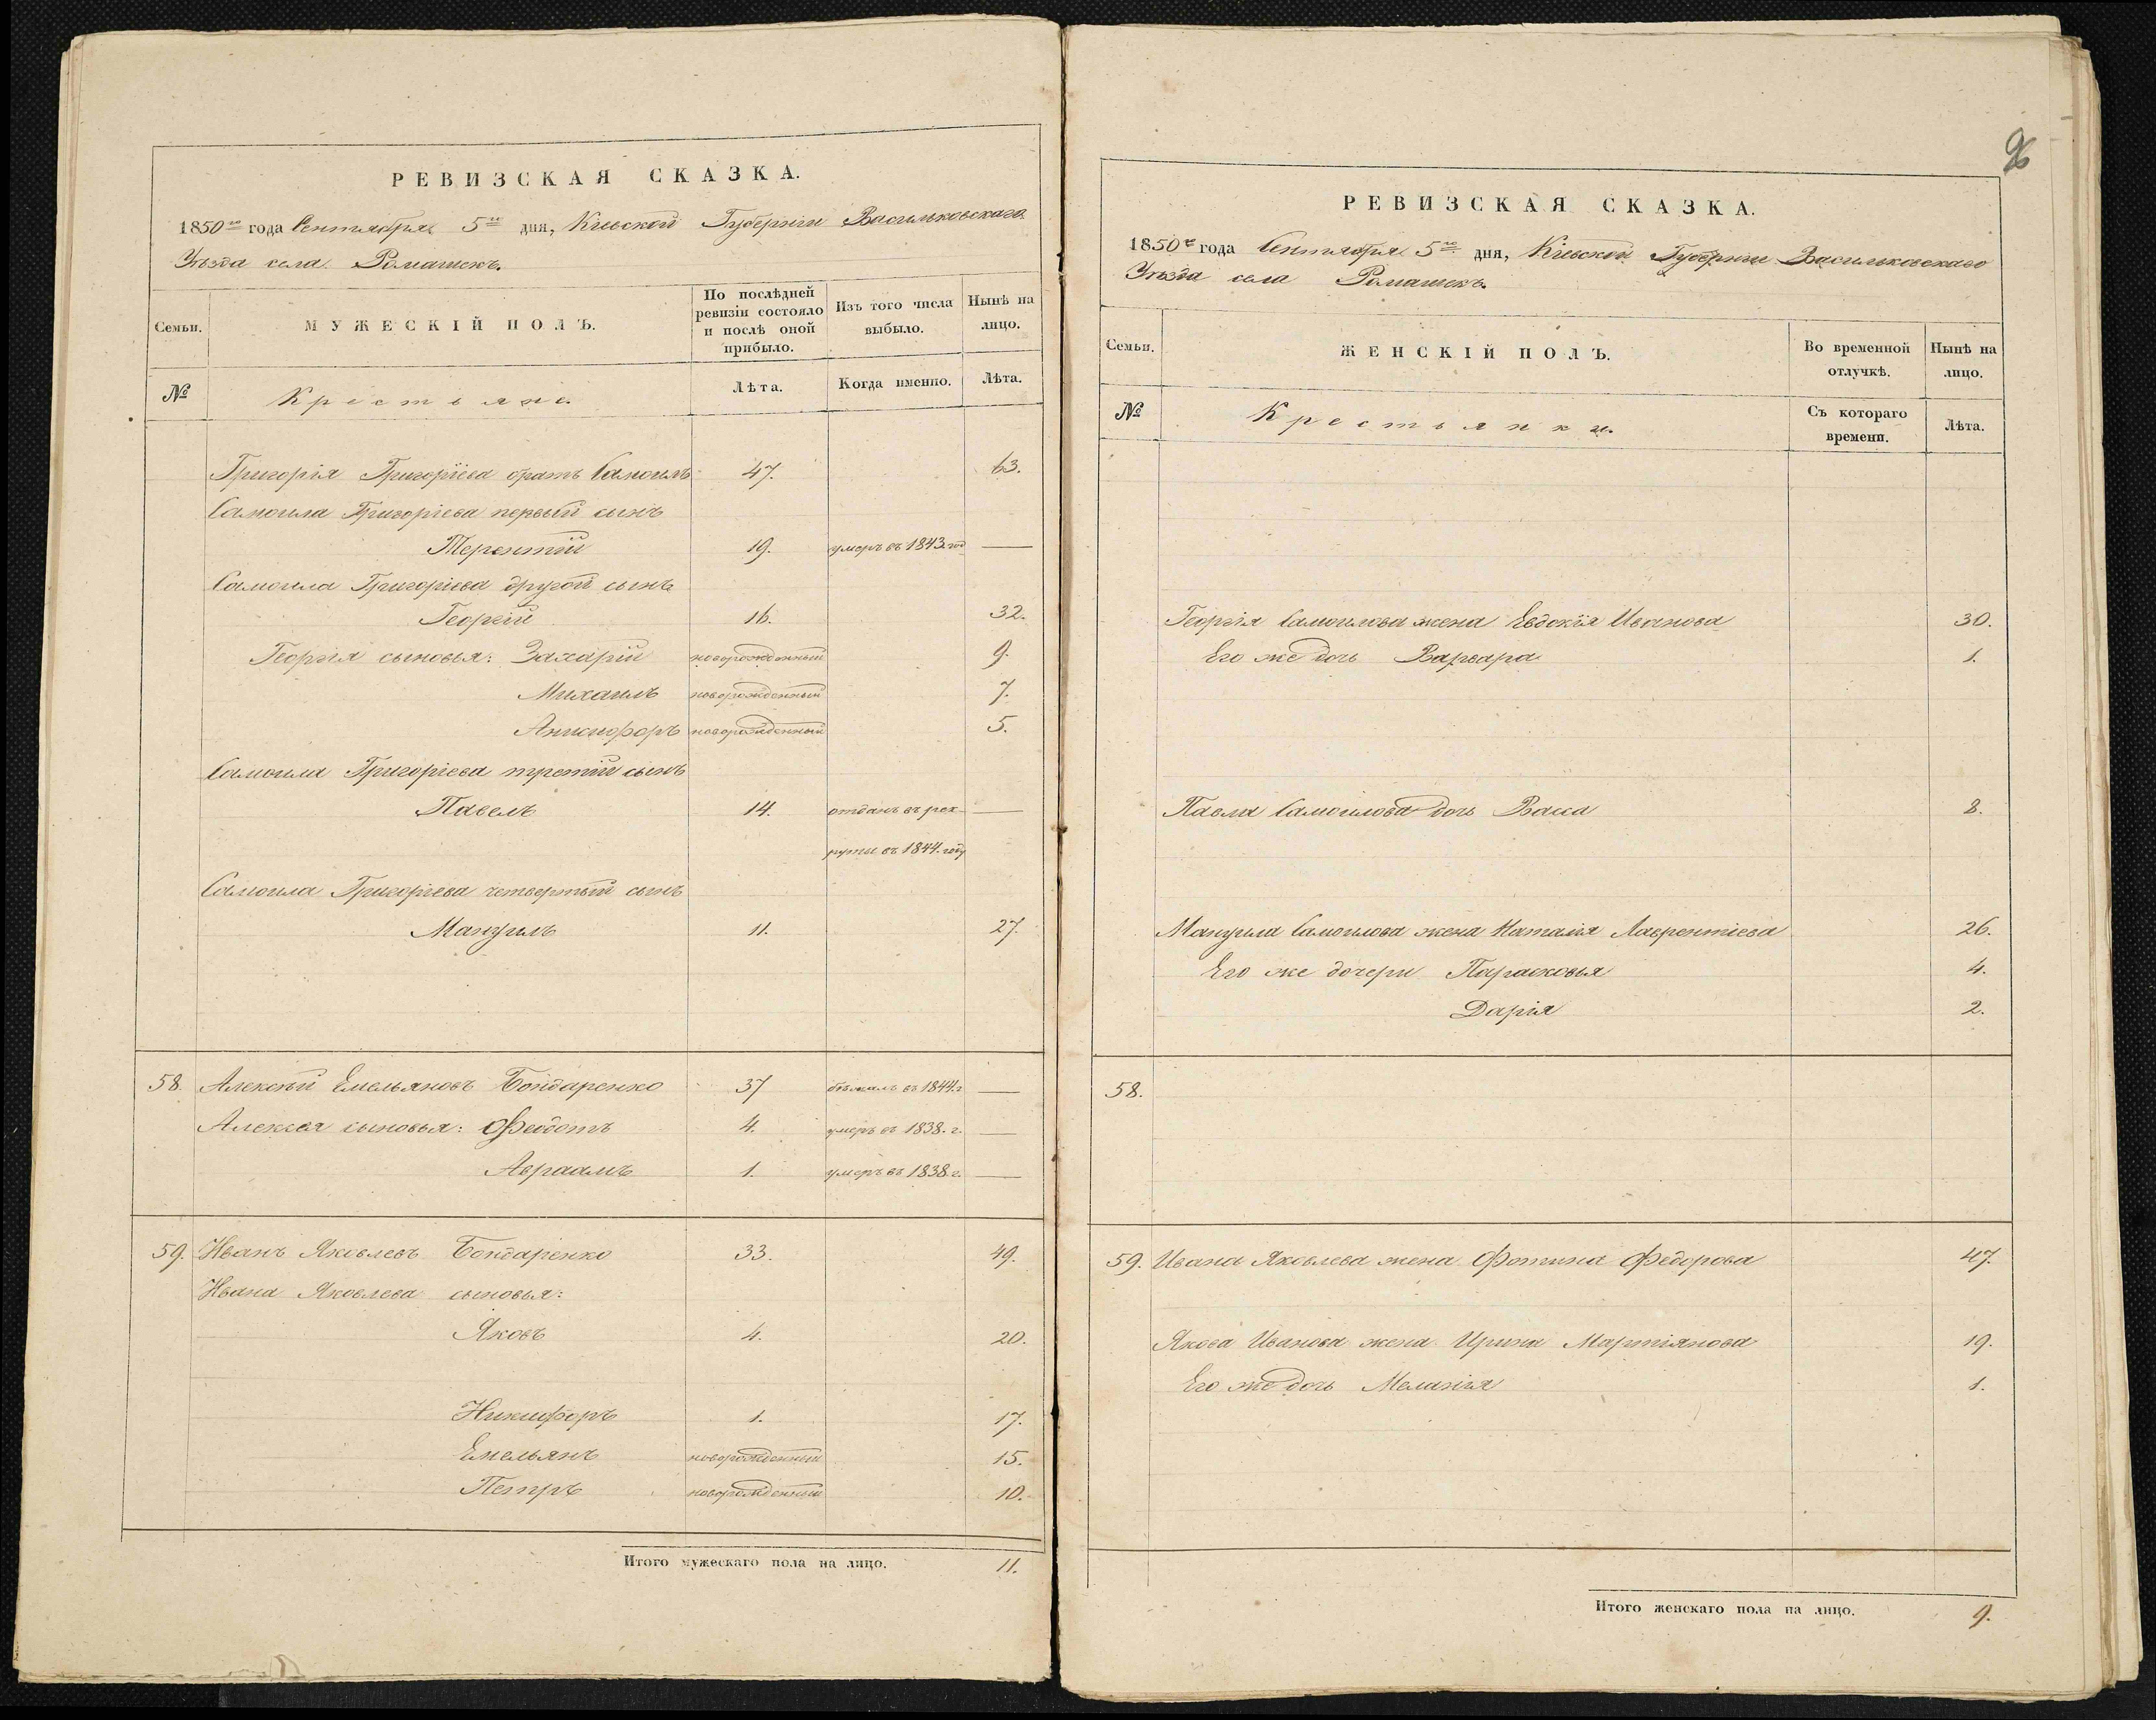 РЕВИЗСКАЯ СКАЗКА.
1850го года Сентября 5го дня, Кіевской Губерніи Васильковскаго
Уѣзда села Ромашекъ.
Семьи.
МУЖЕСКІЙ ПОЛЪ.
По послѣдней ревизіи состояло и послѣ оной прибыло.
Изъ того числа выбыло.
Нынѣ на лицо.
№
Крестьяне.
Лѣта.
Когда именно.
Лѣта.
Григорія Григоріева братъ Самоилъ 47. 63.
Самоила Григоріева первый сынъ
Терентій 19. умеръ въ 1843 год —
Самоила Григоріева другой сынъ
Георгій 16. 32.
Георгія сыновья: Захарій новорожденный 9.
Михаилъ новорожденный 7.
Анисифоръ новорожденный 5.
Самоила Григоріева третій сынъ
Павелъ 14. отданъ въ рек- —
руты въ 1844. году
Самоила Григоріева четвертый сынъ
Мануилъ 11. 27.
58. Алексѣй Емельяновъ Бондаренко 37 бѣжалъ въ 1844 г —
Алексея сыновья: Федотъ 4. умеръ въ 1838. г. —
Авраамъ 1. умеръ въ 1838 г. —
59. Иванъ Яковлевъ Бондаренко 33. 49.
Ивана Яковлева сыновья:
Яковъ 4. 20.
Никифоръ 1. 17.
Емельянъ новорожденный 15.
Петръ новорожденный 10.
Итого мужескаго пола на лицо. 11.
РЕВИЗСКАЯ СКАЗКА.
1850го года Сентября 5го дня, Кіевской Губерніи Васильковскаго
Уѣзда села Ромашекъ.
Семьи.
ЖЕНСКІЙ ПОЛЪ.
Во временной отлучкѣ.
Нынѣ на лицо.
№
Крестьянки.
Съ котораго времени.
Лѣта.
Георгія Самоилова жена Евдокія Иванова 30.
Его же дочь Варвара 1.
Павла Самоилова дочь Васса 8.
Мануила Самоилова жена Наталія Лаврентіева 26.
Его же дочери Парасковья 4.
Дарія 2.
58.
59. Ивана Яковлева жена Фотина Федорова 47.
Якова Иванова жена Ирина Мартіянова 19.
Его же дочь Меланія 1.
Итого женскаго пола на лицо. 9.